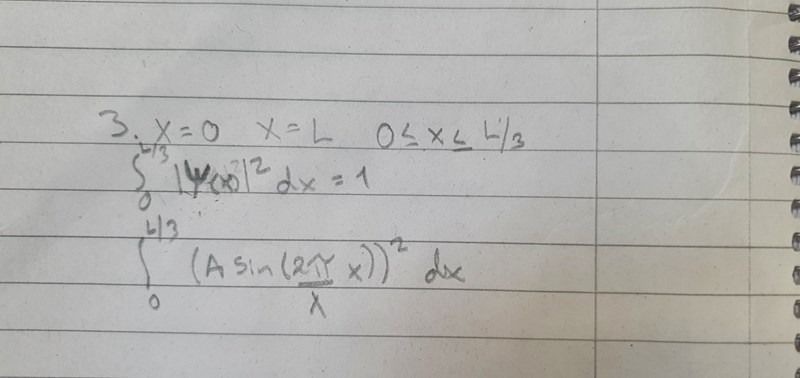 3. x = 0 x = L 0 ≤ x ≤ L/3
∫₀^{L/3} |Ψ(x)|² dx = 1
∫₀^{L/3} (A sin(2π/λ x))² dx